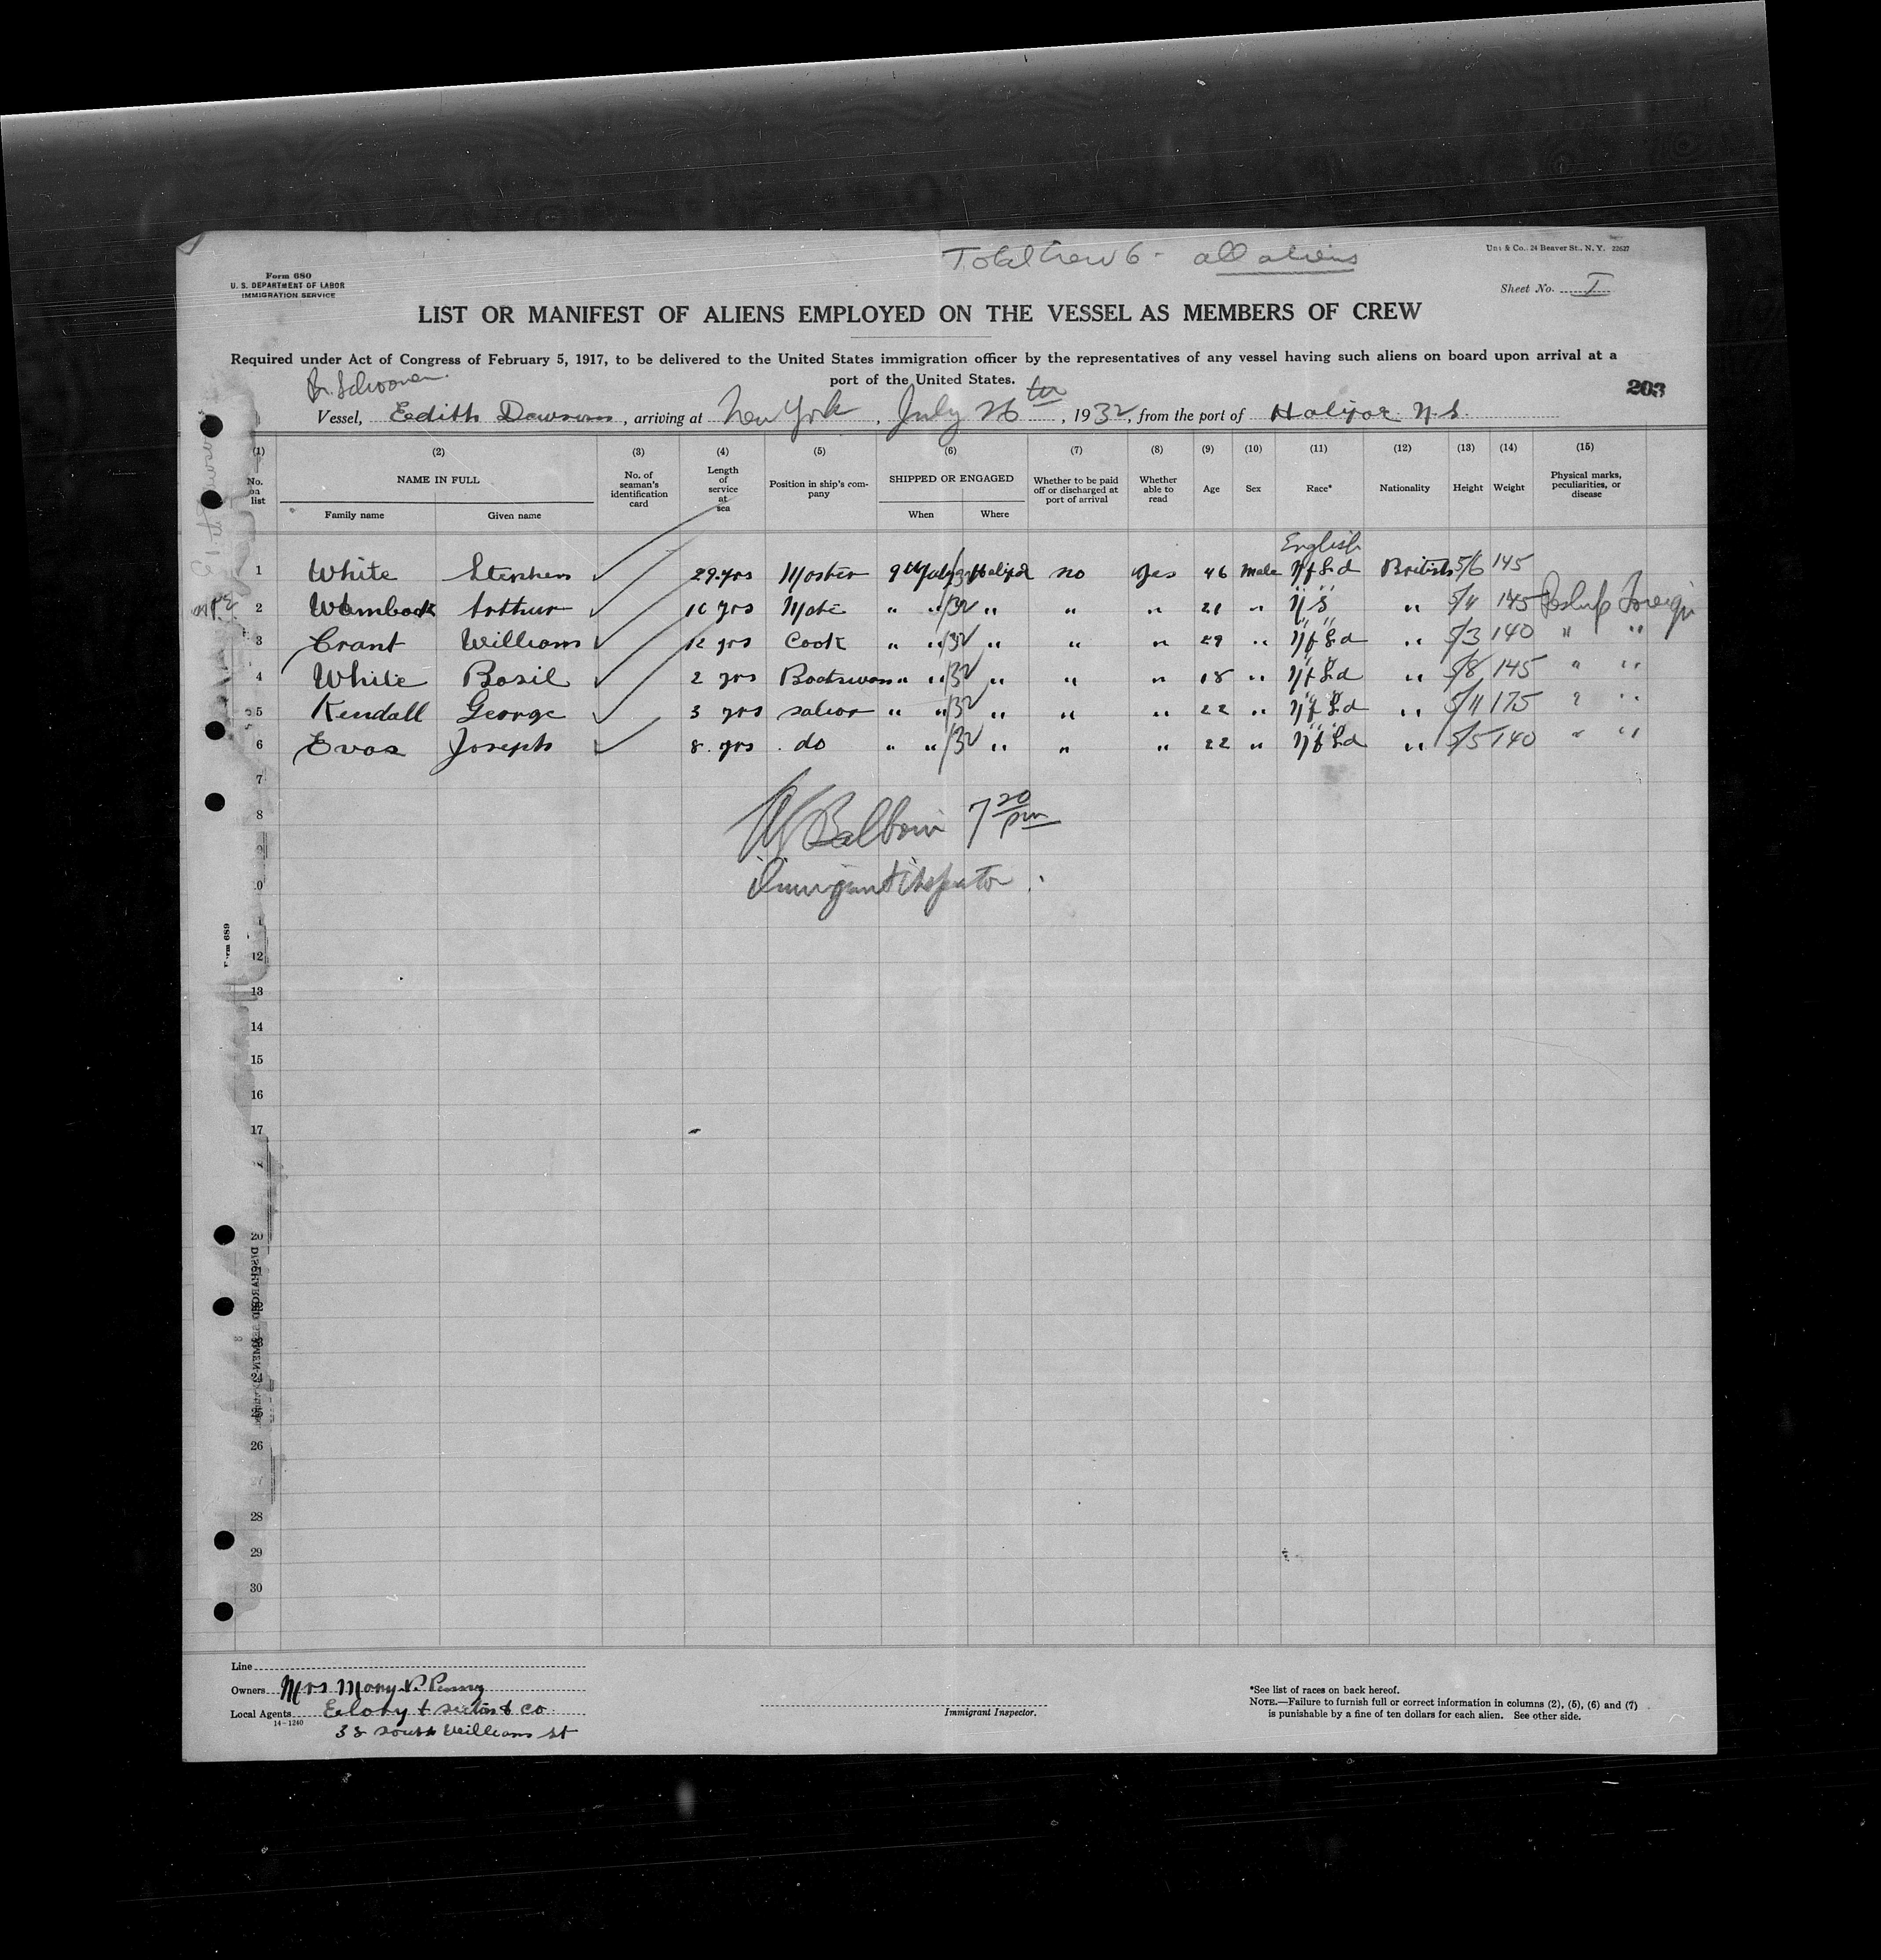 Total Crew 6 - all aliens
Form 680
U. S. DEPARTMENT OF LABOR
IMMIGRATION SERVICE
& Co., 24 Beaver St., N. Y. 22627
Sheet No. I
LIST OR MANIFEST OF ALIENS EMPLOYED ON THE VESSEL AS MEMBERS OF CREW
Required under Act of Congress of February 5, 1917, to be delivered to the United States immigration officer by the representatives of any vessel having such aliens on board upon arrival at a
port of the United States.
Br. Schooner
203
Vessel, Edith Dawson, arriving at New York, July 26th, 1932, from the port of Halifax N.S.
(1) (2) (3) (4) (5) (6) (7) (8) (9) (10) (11) (12) (13) (14) (15)
No. on list NAME IN FULL No. of seaman's identification card Length of service at sea Position in ship's company SHIPPED OR ENGAGED Whether to be paid off or discharged at port of arrival Whether able to read Age Sex Race* Nationality Height Weight Physical marks, peculiarities, or disease
Family name Given name When Where
English
1 White Stephen 29 yrs Master 9th July/32 Halifax no Yes 46 Male Nfld British 5/6 145
2 Wambock Arthur 10 yrs Mate " "/32 " " " 21 " N S " 5/11 145 Foreign
3 Grant William 12 yrs Cook " "/32 " " " 29 " Nfld " 5/3 140 " "
4 White Basil 2 yrs Boatswan " "/32 " " " 18 " Nfld " 5/8 145 " "
5 Kendall George 3 yrs sailor " "/32 " " " 22 " Nfld " 5/11 175 " "
6 Evas Joseph 8 yrs do " "/32 " " " 22 " Nfld " 5/5 140 " "
7
8 Baldwin 7 20 pm
9
10 Immigrant Inspector
12
13
14
15
16
17
20
24
26
27
28
29
30
Form 689
Line
Owners Mrs Mary P. Penny
Local Agents & Co
14-1240
38 South William St
Immigrant Inspector.
*See list of races on back hereof.
NOTE.—Failure to furnish full or correct information in columns (2), (5), (6) and (7)
is punishable by a fine of ten dollars for each alien. See other side.